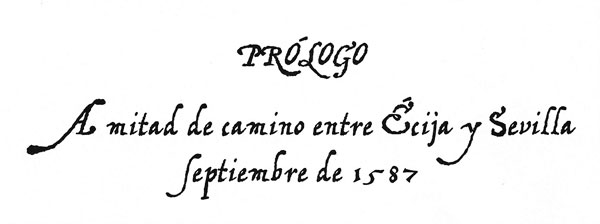 PRÓLOGO
A mitad de camino entre Écija y Sevilla
septiembre de 1587